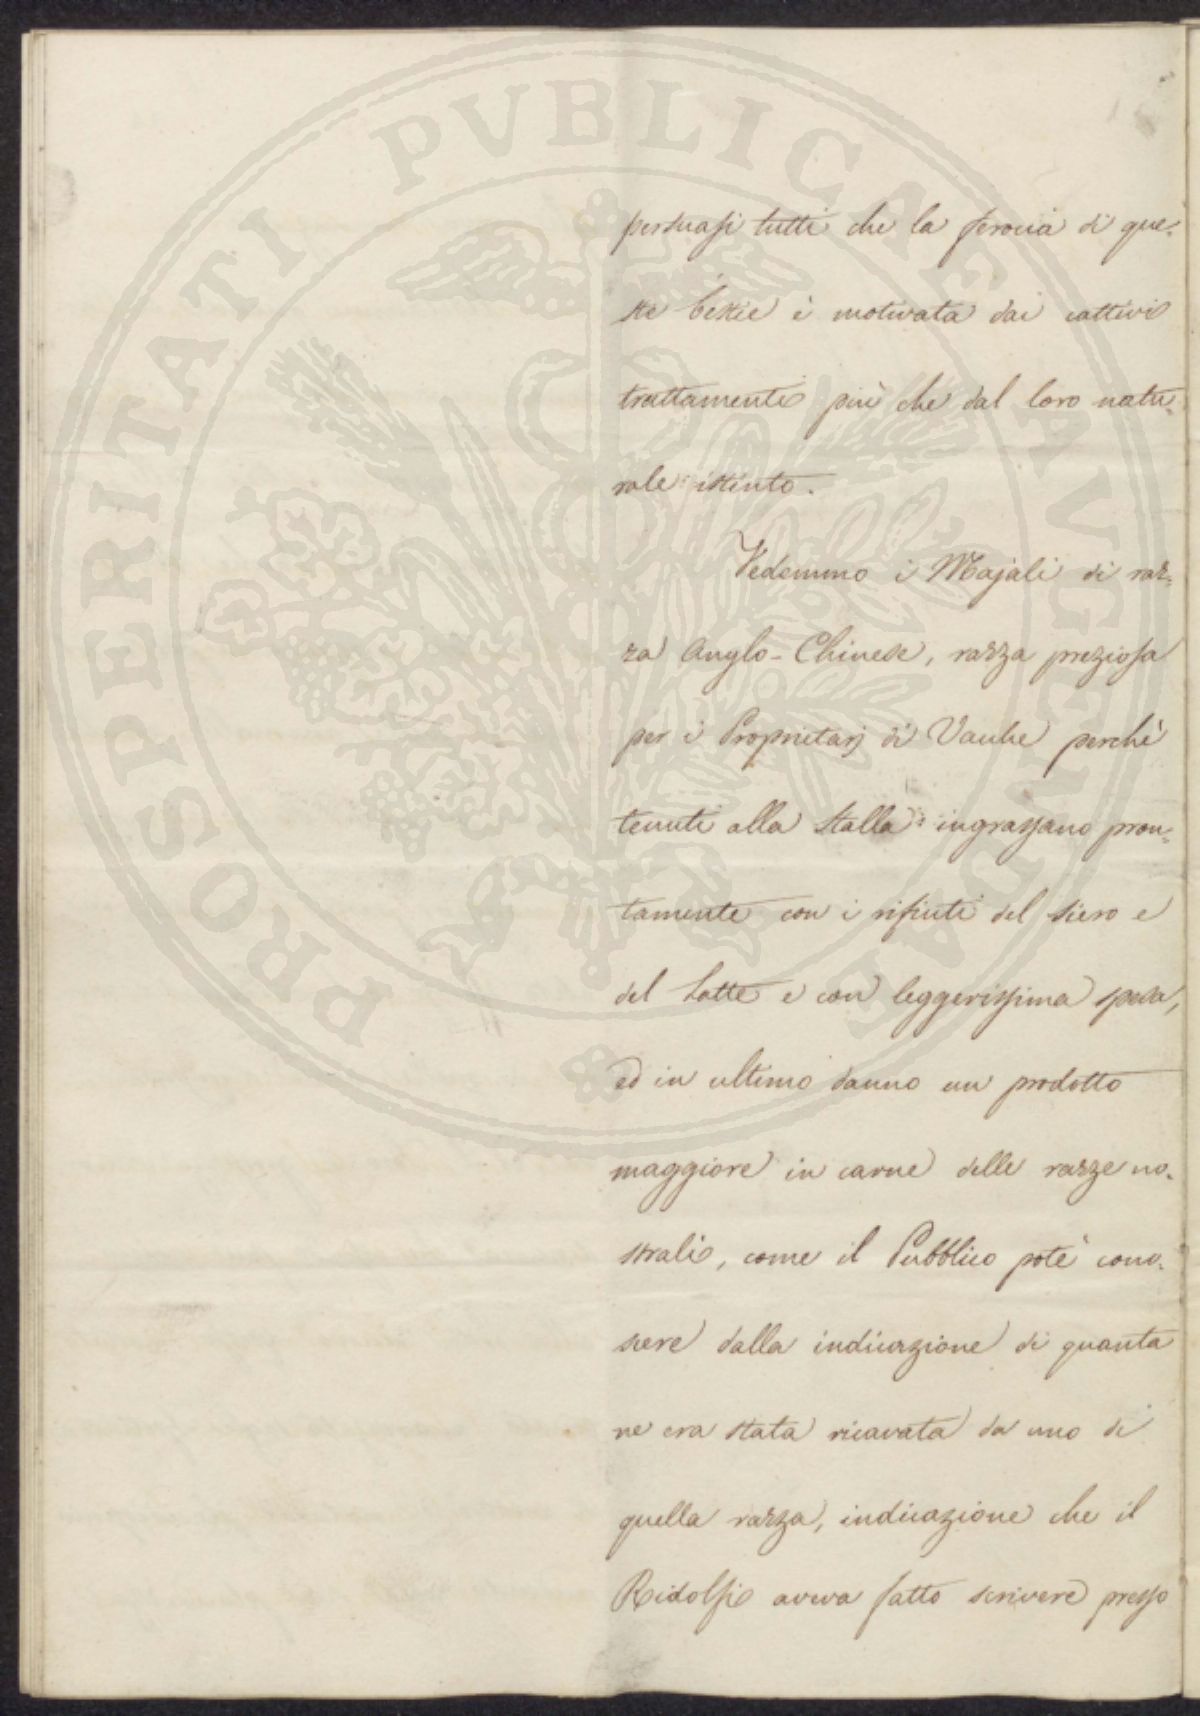 PROSPERITATI PVBLICAE AVGENDAE
persuasi tutti che la ferocia di que-
ste bestie è motivata dai cattivi
trattamenti più che dal loro natu-
rale istinto.
Vedemmo i Majali di raz-
za Anglo-Chinese, razza preziosa
per i Proprietarj di Vacche perchè
tenuti alla stalla ingrassano pron-
tamente con i rifiuti del siero e
del Latte e con leggerissima spesa,
ed in ultimo danno un prodotto
maggiore in carne delle razze no-
strali, come il Pubblico potè cono-
scere dalla indicazione di quanta
ne era stata ricavata da uno di
quella razza, indicazione che il
Ridolfi aveva fatto scrivere presso